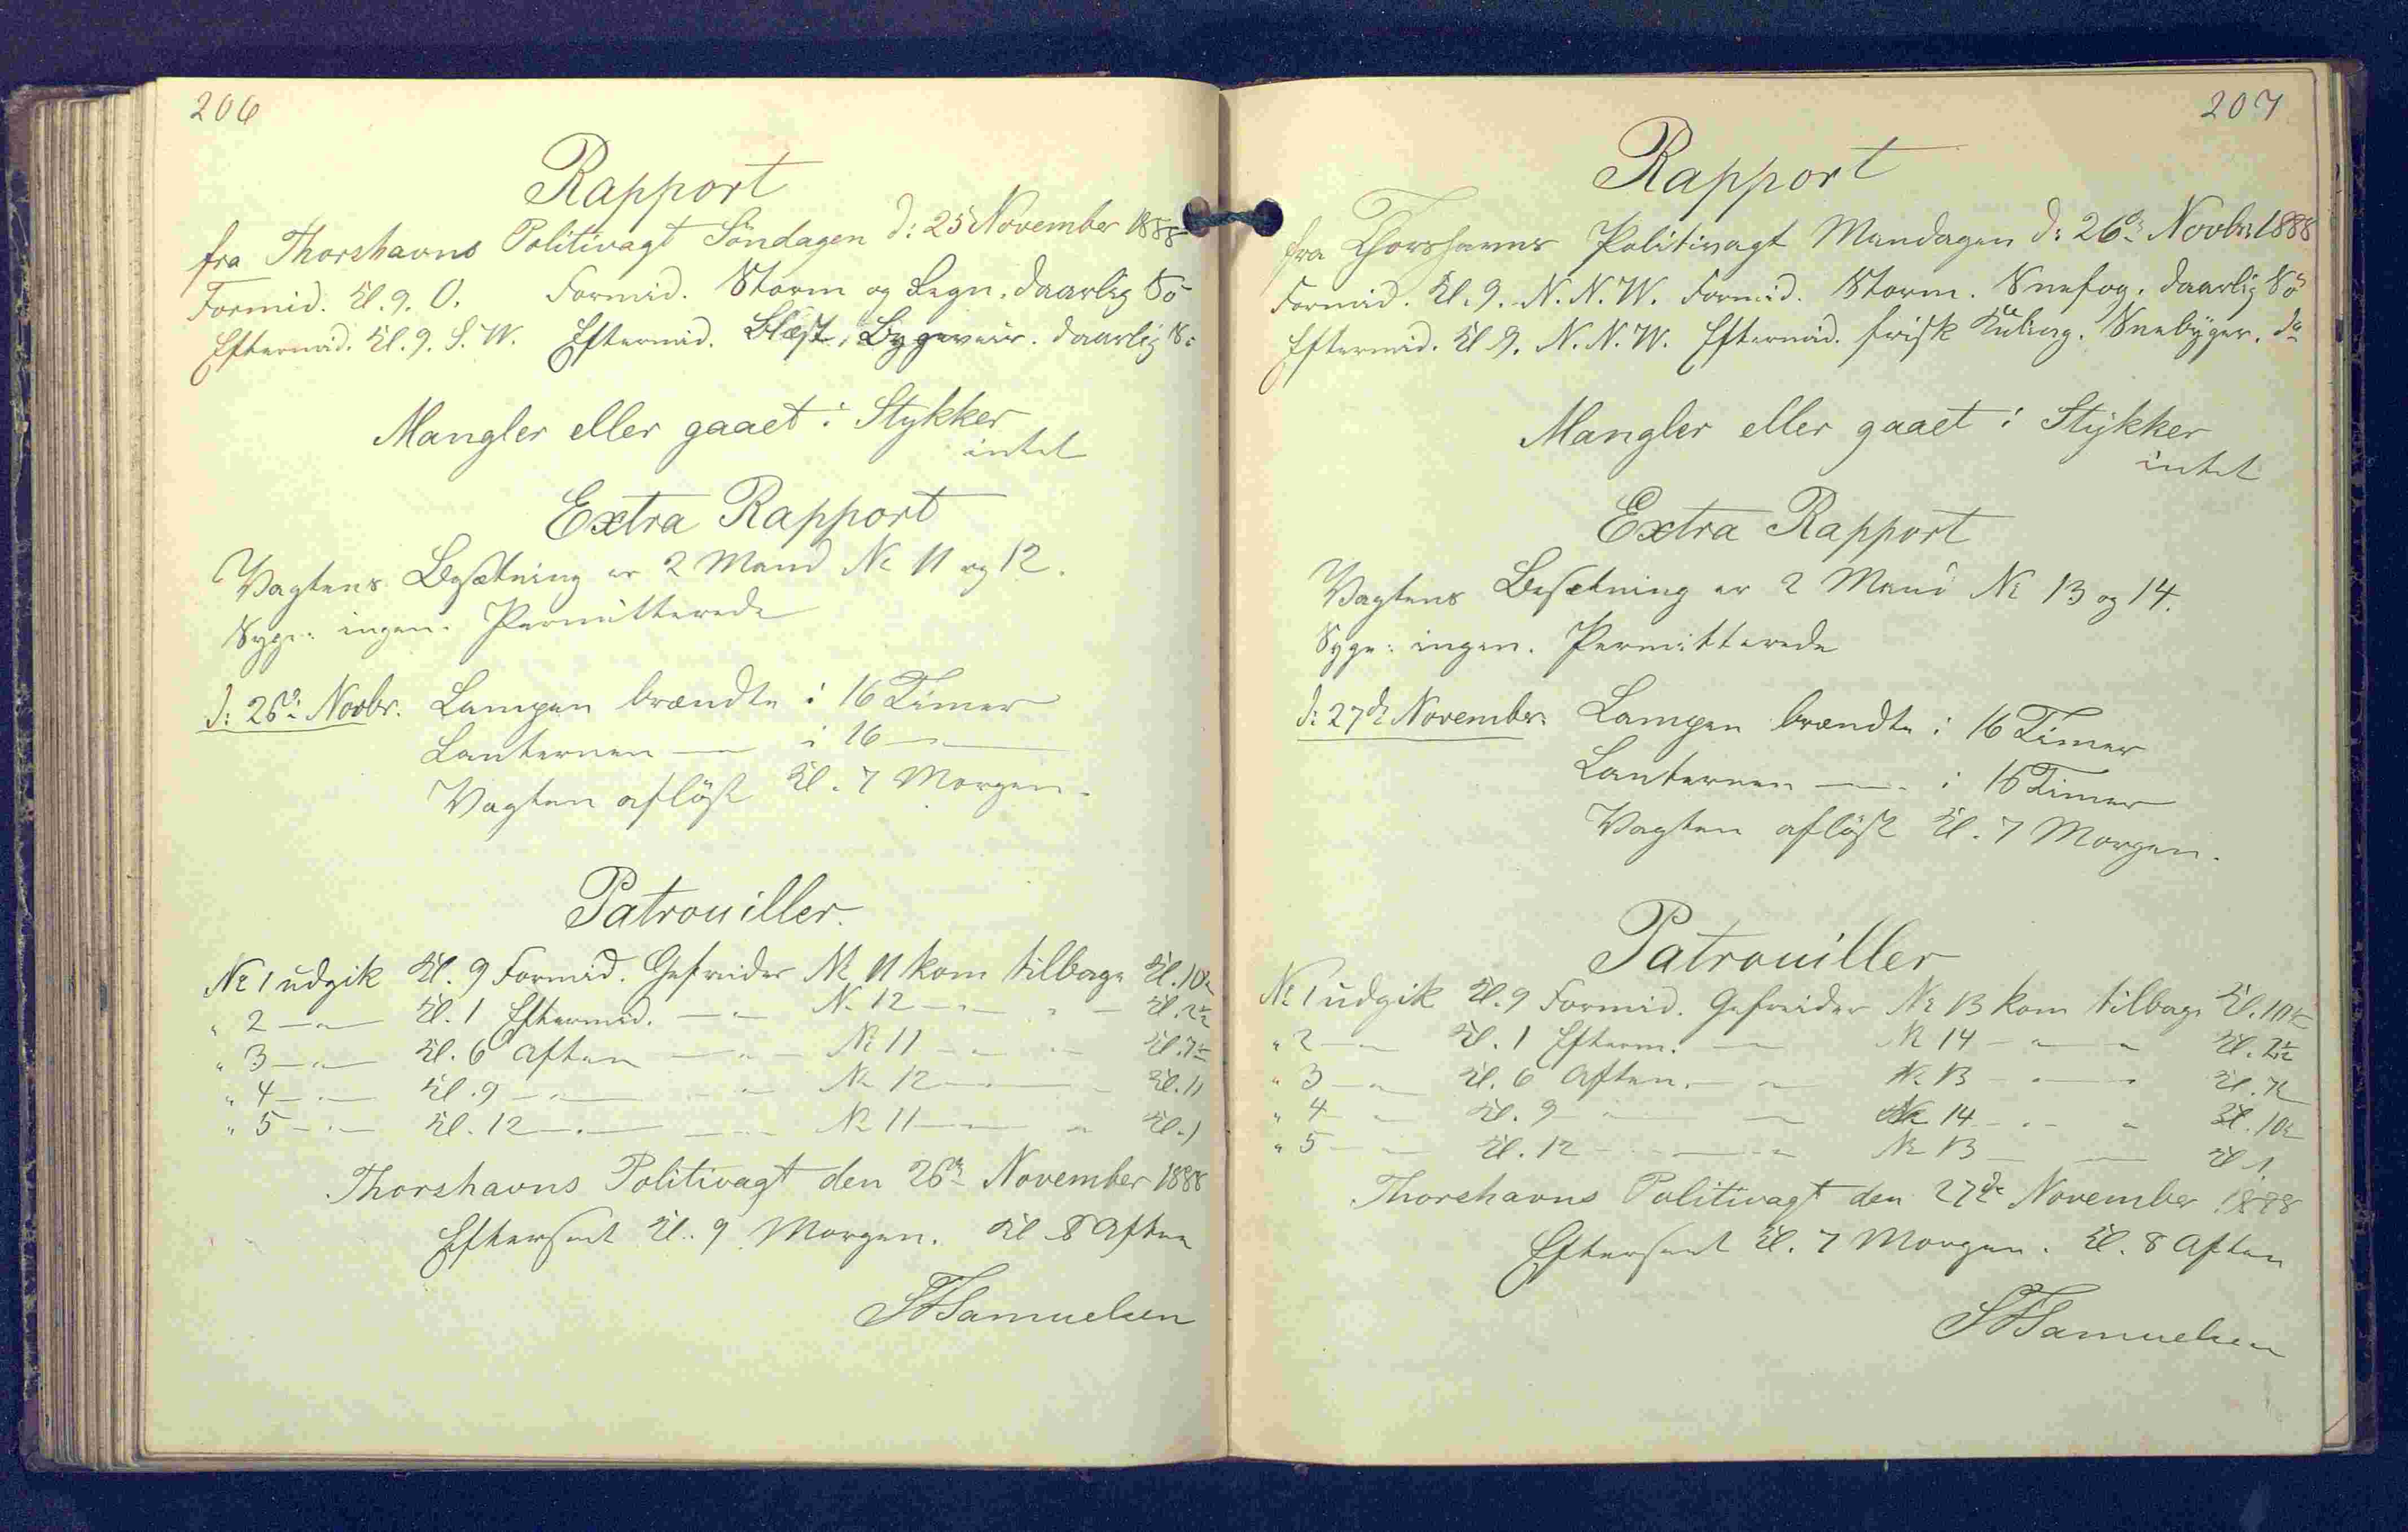 206
Rapport
fra Thorshavns Politivagt Søndagen d: 25 November 1888
Formid. Kl. 9. O. Formid. Storm og Regn. daarlig Sø
Eftermid. Kl. 9. S. W. Eftermid. Blæst, Bygeveir. daarlig S:
Mangler eller gaaet i Stykker
intet
Extra Rapport
Vagtens Besætning er 2 Mand No 11 og 12.
Syge: ingen. Permitterede
d: 26de Novbr. Lampen brændte i 16 Timer
Lanternen — " — i 16 — " —
Vagten afløst Kl. 7 Morgen.
Patrouiller.
No 1 udgik Kl. 9 Formid. Gefreider No 11 kom tilbage Kl. 10½
" 2 — " — Kl. 1 Eftermid. — " — No 12 — " — " — Kl. 2½
" 3 — " — Kl. 6 Aften — " — No 11 — " — " — Kl. 7½
" 4 — " — Kl. 9 — " — " — No 12 — " — Kl. 11
" 5 — " — Kl. 12 — " — " — No 11 — " — " Kl. 1
Thorshavns Politivagt den 26de November 1888
Efterseet Kl. 9 Morgen. Kl 8 Aften
Samuelsen
207
Rapport
fra Thorshavns Politivagt Mandagen d: 26de Novbr. 1888
Formid. Kl. 9. N. N. W. Formid. Storm. Snefog. daarlig Sø
Eftermid. Kl 9. N. N. W. Eftermid. frisk Kuling. Snebyger. do
Mangler eller gaaet i Stykker
intet
Extra Rapport
Vagtens Besætning er 2 Mand No 13 og 14.
Syge: ingen. Permitterede
d: 27de November. Lampen brændte i 16 Timer
Lanternen — " — i 16 Timer
Vagten afløst Kl. 7 Morgen.
Patrouiller
No 1 udgik Kl. 9 Formid. Gefreider No 13 kom tilbage Kl. 10½
" 2 — " Kl. 1 Efterm. — " No 14 — " — " Kl. 2½
" 3 — " Kl. 6 Aften. — " No 13 — " — " Kl. 7½
" 4 — " Kl. 9 — " — " No 14 — " — " Kl. 10½
" 5 — " Kl. 12 — " — " No 13 — " — Kl 1
Thorshavns Politivagt den 27de November 1888
Efterseet Kl. 7 Morgen. Kl. 8 Aften
Samuelsen